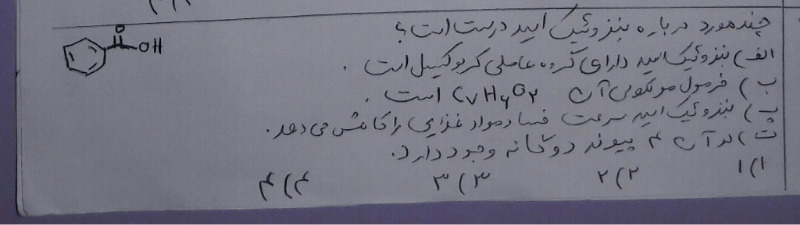 چند مورد درباره بنزوئیک اسید درست است؟
الف) بنزوئیک اسید دارای گروه عاملی کربوکسیل است.
ب) فرمول مولکولی آن C۷H۶O۲ است.
پ) بنزوئیک اسید سرعت فساد مواد غذایی را کاهش می دهد.
ت) در آن ۴ پیوند دوگانه وجود دارد.
۱) ۱ ۲) ۲ ۳) ۳ ۴) ۴
O
OH